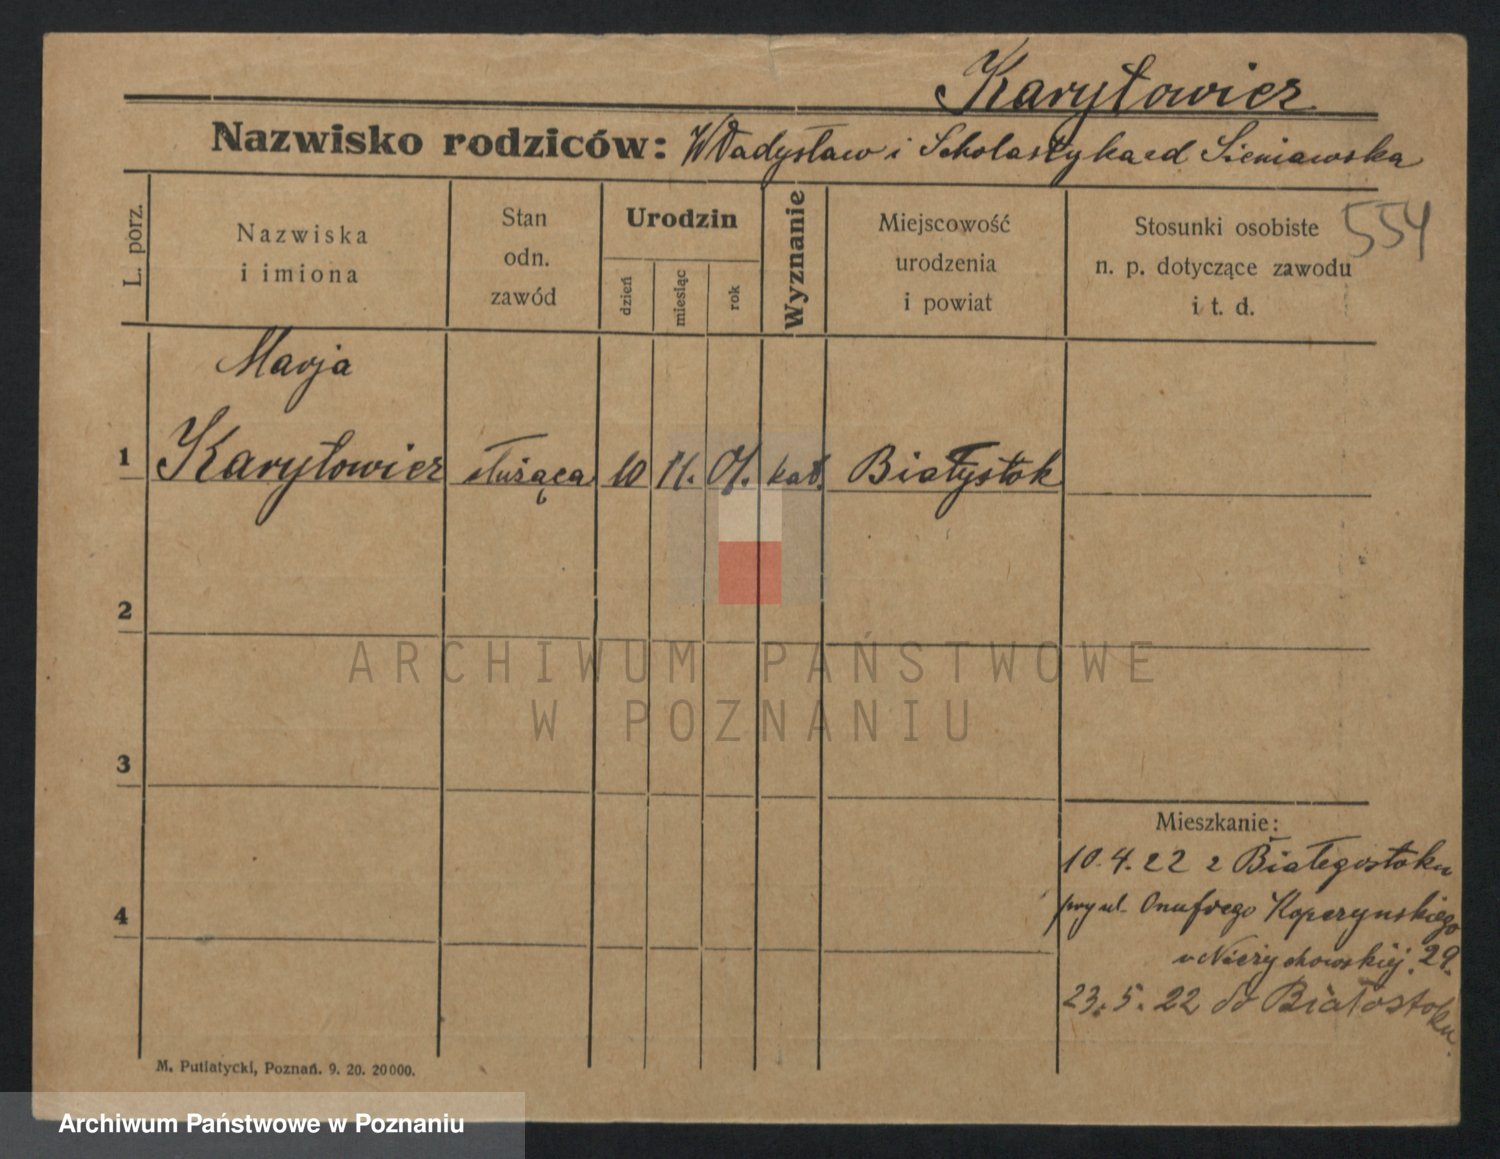 Karyłowicz
Nazwisko rodziców: Władysław i Scholastyka z d Sieniawska
554
L. porz.
Nazwiska
i imiona
Stan
odn.
zawód
Urodzin
dzień
miesiąc
rok
Wyznanie
Miejscowość
urodzenia
i powiat
Stosunki osobiste
n. p. dotyczące zawodu
i t. d.
Marja
1 Karyłowicz służąca 10 11. 01. kat. Białystok
2
3
4
Mieszkanie:
10.4.22 z Białegostoku
przy ul. Onufrego Kopczynskiego
u 29.
23.5.22 do Białostoku.
M. Putiatycki, Poznań. 9. 20. 20000.
ARCHIWUM PAŃSTWOWE
W POZNANIU
Archiwum Państwowe w Poznaniu